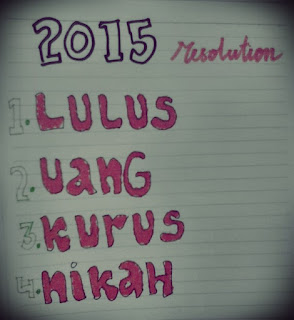 2015 Resolution
1. LULUS
2. UANG
3. KURUS
4. NIKAH